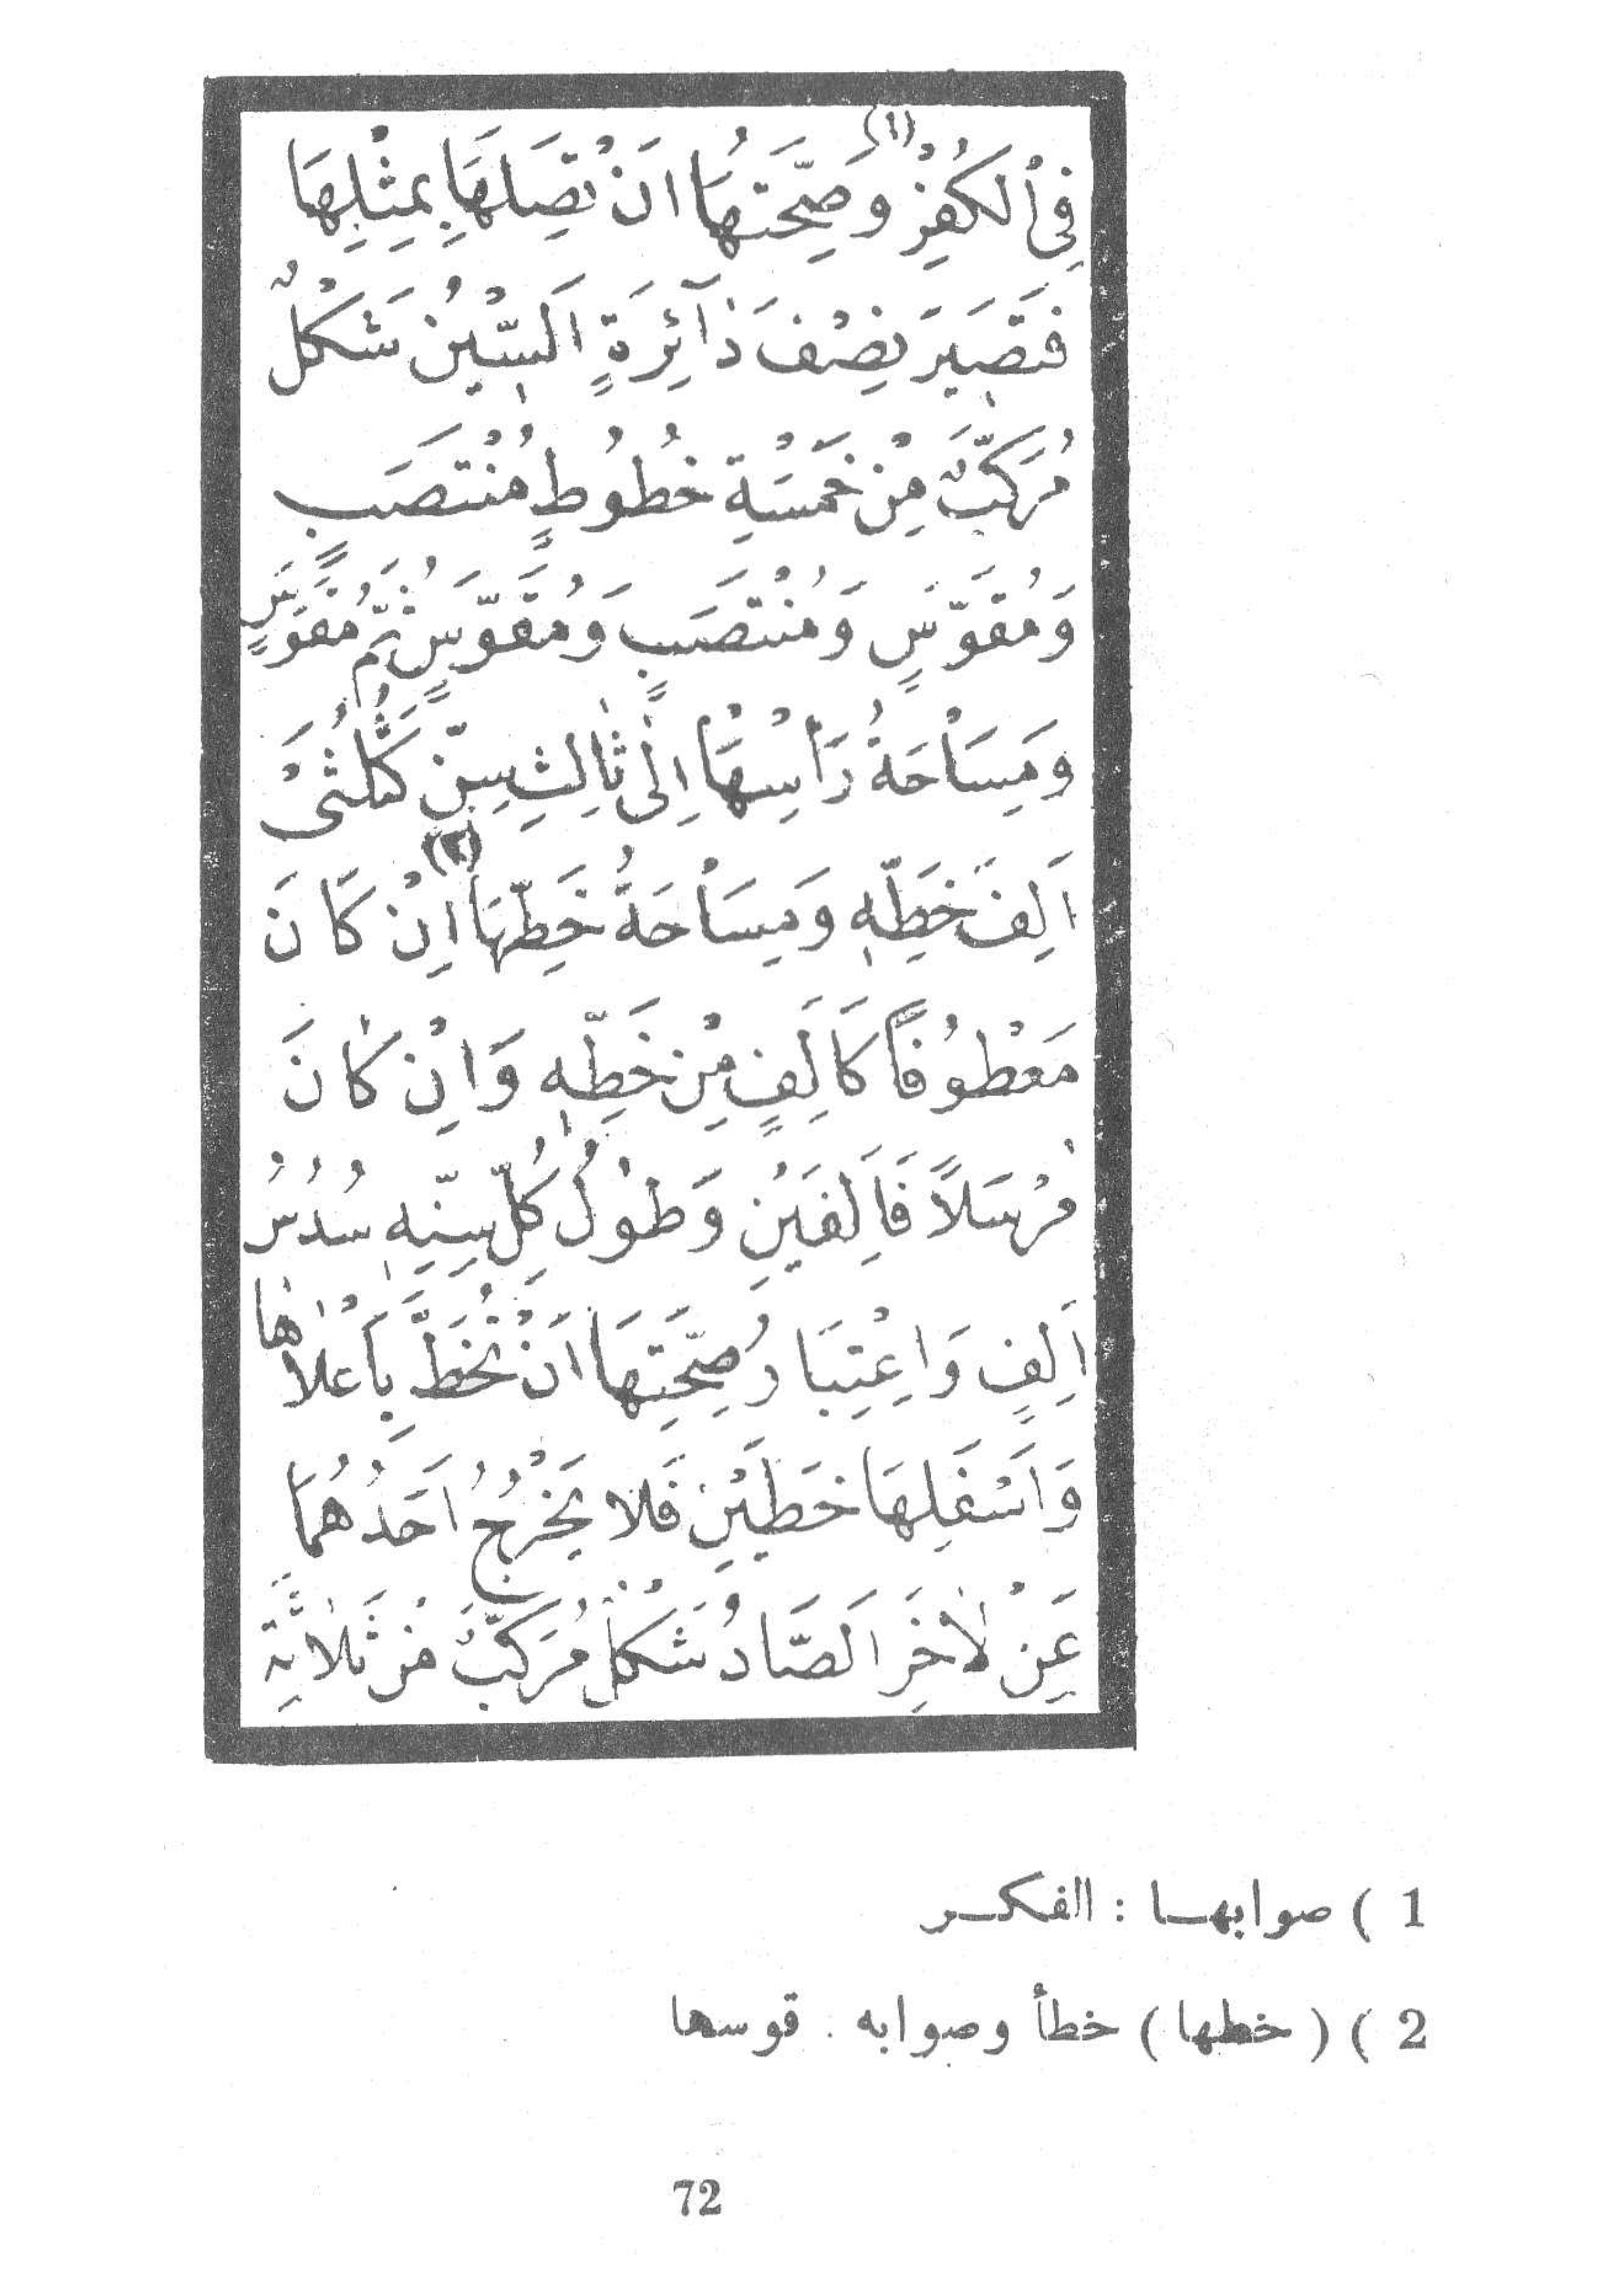 فِي ٱلْكُفِرْ (١) وَصِحَّتُهَا اَنْ تَصِلَهَا بِمِثْلِهَا
فَتَصِيرَ نِصْفَ دَآئِرَةٍ اَلسِّيْنُ شَكْلٌ
مُرَكَّبٌ مِنْ خَمْسَةِ خُطُوطٍ مُنْتَصَبٍ
وَمُقَوَّسٍ وَمُنْتَصَبٍ وَمُقَوَّسٍ ثُمَّ مُقَوَّسٍ
وَمِسَاْحَةُ رَأْسِهَا اِلٰى ثَالِثِ سِنٍّ كَثُلُثَىْ
اَلِفِ خَطِّهِ وَمِسَاْحَةُ خَطِّهَا (٢) اِنْ كَانَ
مَعْطُوُفاً كَاَلِفٍ مِنْ خَطِّهِ وَاِنْ كَانَ
مُرْسَلاً فَاَلِفَيْنِ وَطُوْلُ كُلِّ سِنِّهِ سُدُسُ
اَلِفٍ وَاِعْتِبَارُ صِحَّتِهَا اَنْ تُخَطَّ بِاَعْلاٰهَا
وَاَسْفَلِهَا خَطَّيْنِ فَلا يَخْرُجُ اَحَدُهُمَا
عَنْ لاٰخَرِ اَلصَّادُ شَكْلٌ مُرَكَّبٌ مِنْ ثَلٰاثَةِ
1 ) صوابهــا : الفكــر
2 ) ( خطها ) خطأ وصوابه . قوسها
72